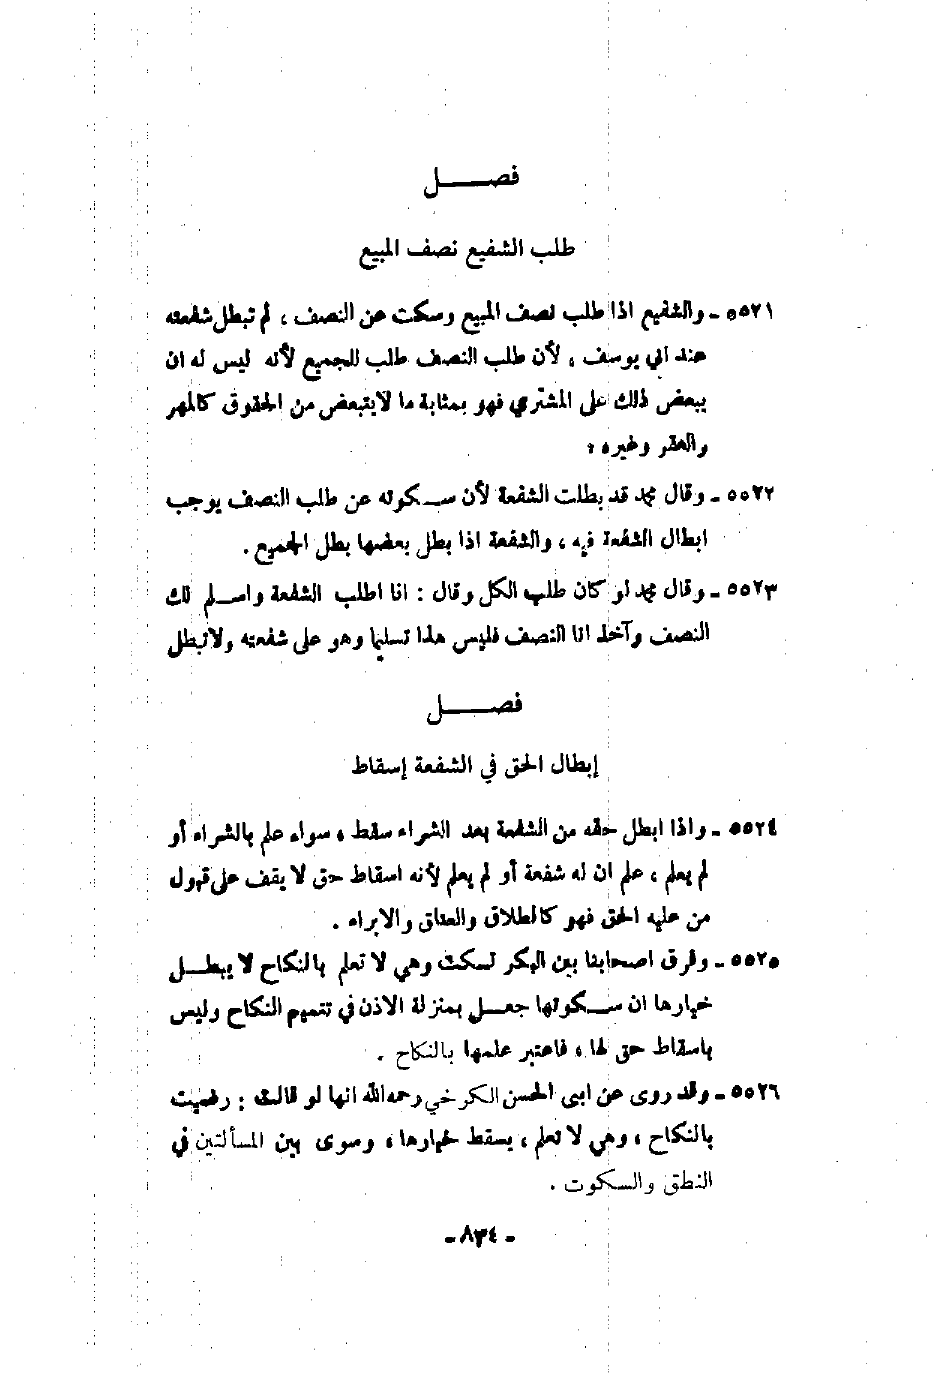 فصــــل
طلب الشفيع نصف المبيع
٥٥٢١ - والشفيع اذا طلب نصف المبيع وسكت عن النصف ، لم تبطل شفعته
عند ابي يوسف ، لأن طلب النصف طلب للجميع لأنه ليس له ان
يبعض ذلك على المشتري فهو بمثابة ما لا يتبعض من الحقوق كالمهر
والعقر وغيره .
٥٥٢٢ - وقال محمد قد بطلت الشفعة لأن سـكوته عن طلب النصف يوجب
ابطال الشفعة فيه ، والشفعة اذا بطل بعضها بطل الجميع .
٥٥٢٣ - وقال محمد لو كان طلب الكل وقال : انا اطلب الشفعة واسـلم لك
النصف وآخذ انا النصف فليس هذا تسليما وهو على شفعته ولا تبطل
فصــــل
إبطال الحق في الشفعة إسقاط
٥٥٢٤ - واذا ابطل حقه من الشفعة بعد الشراء سقط ، سواء علم بالشراء أو
لم يعلم ، علم ان له شفعة أو لم يعلم لأنه اسقاط حق لا يقف على قبول
من عليه الحق فهو كالطلاق والعتاق والابراء .
٥٥٢٥ - وفرق اصحابنا بين البكر تسكت وهي لا تعلم بالنكاح لا يبطـل
خيارها ان سـكوتها جعـل بمنزلة الاذن في تتميم النكاح وليس
باسقاط حق لها ، فاعتبر علمها بالنكاح .
٥٥٢٦ - وقد روى عن ابى الحسن الكرخي رحمه الله انها لو قالت : رضيت
بالنكاح ، وهي لا تعلم ، يسقط خيارها ، وسوى بين المسألتين في
النطق والسكوت .
- ٨٣٤ -